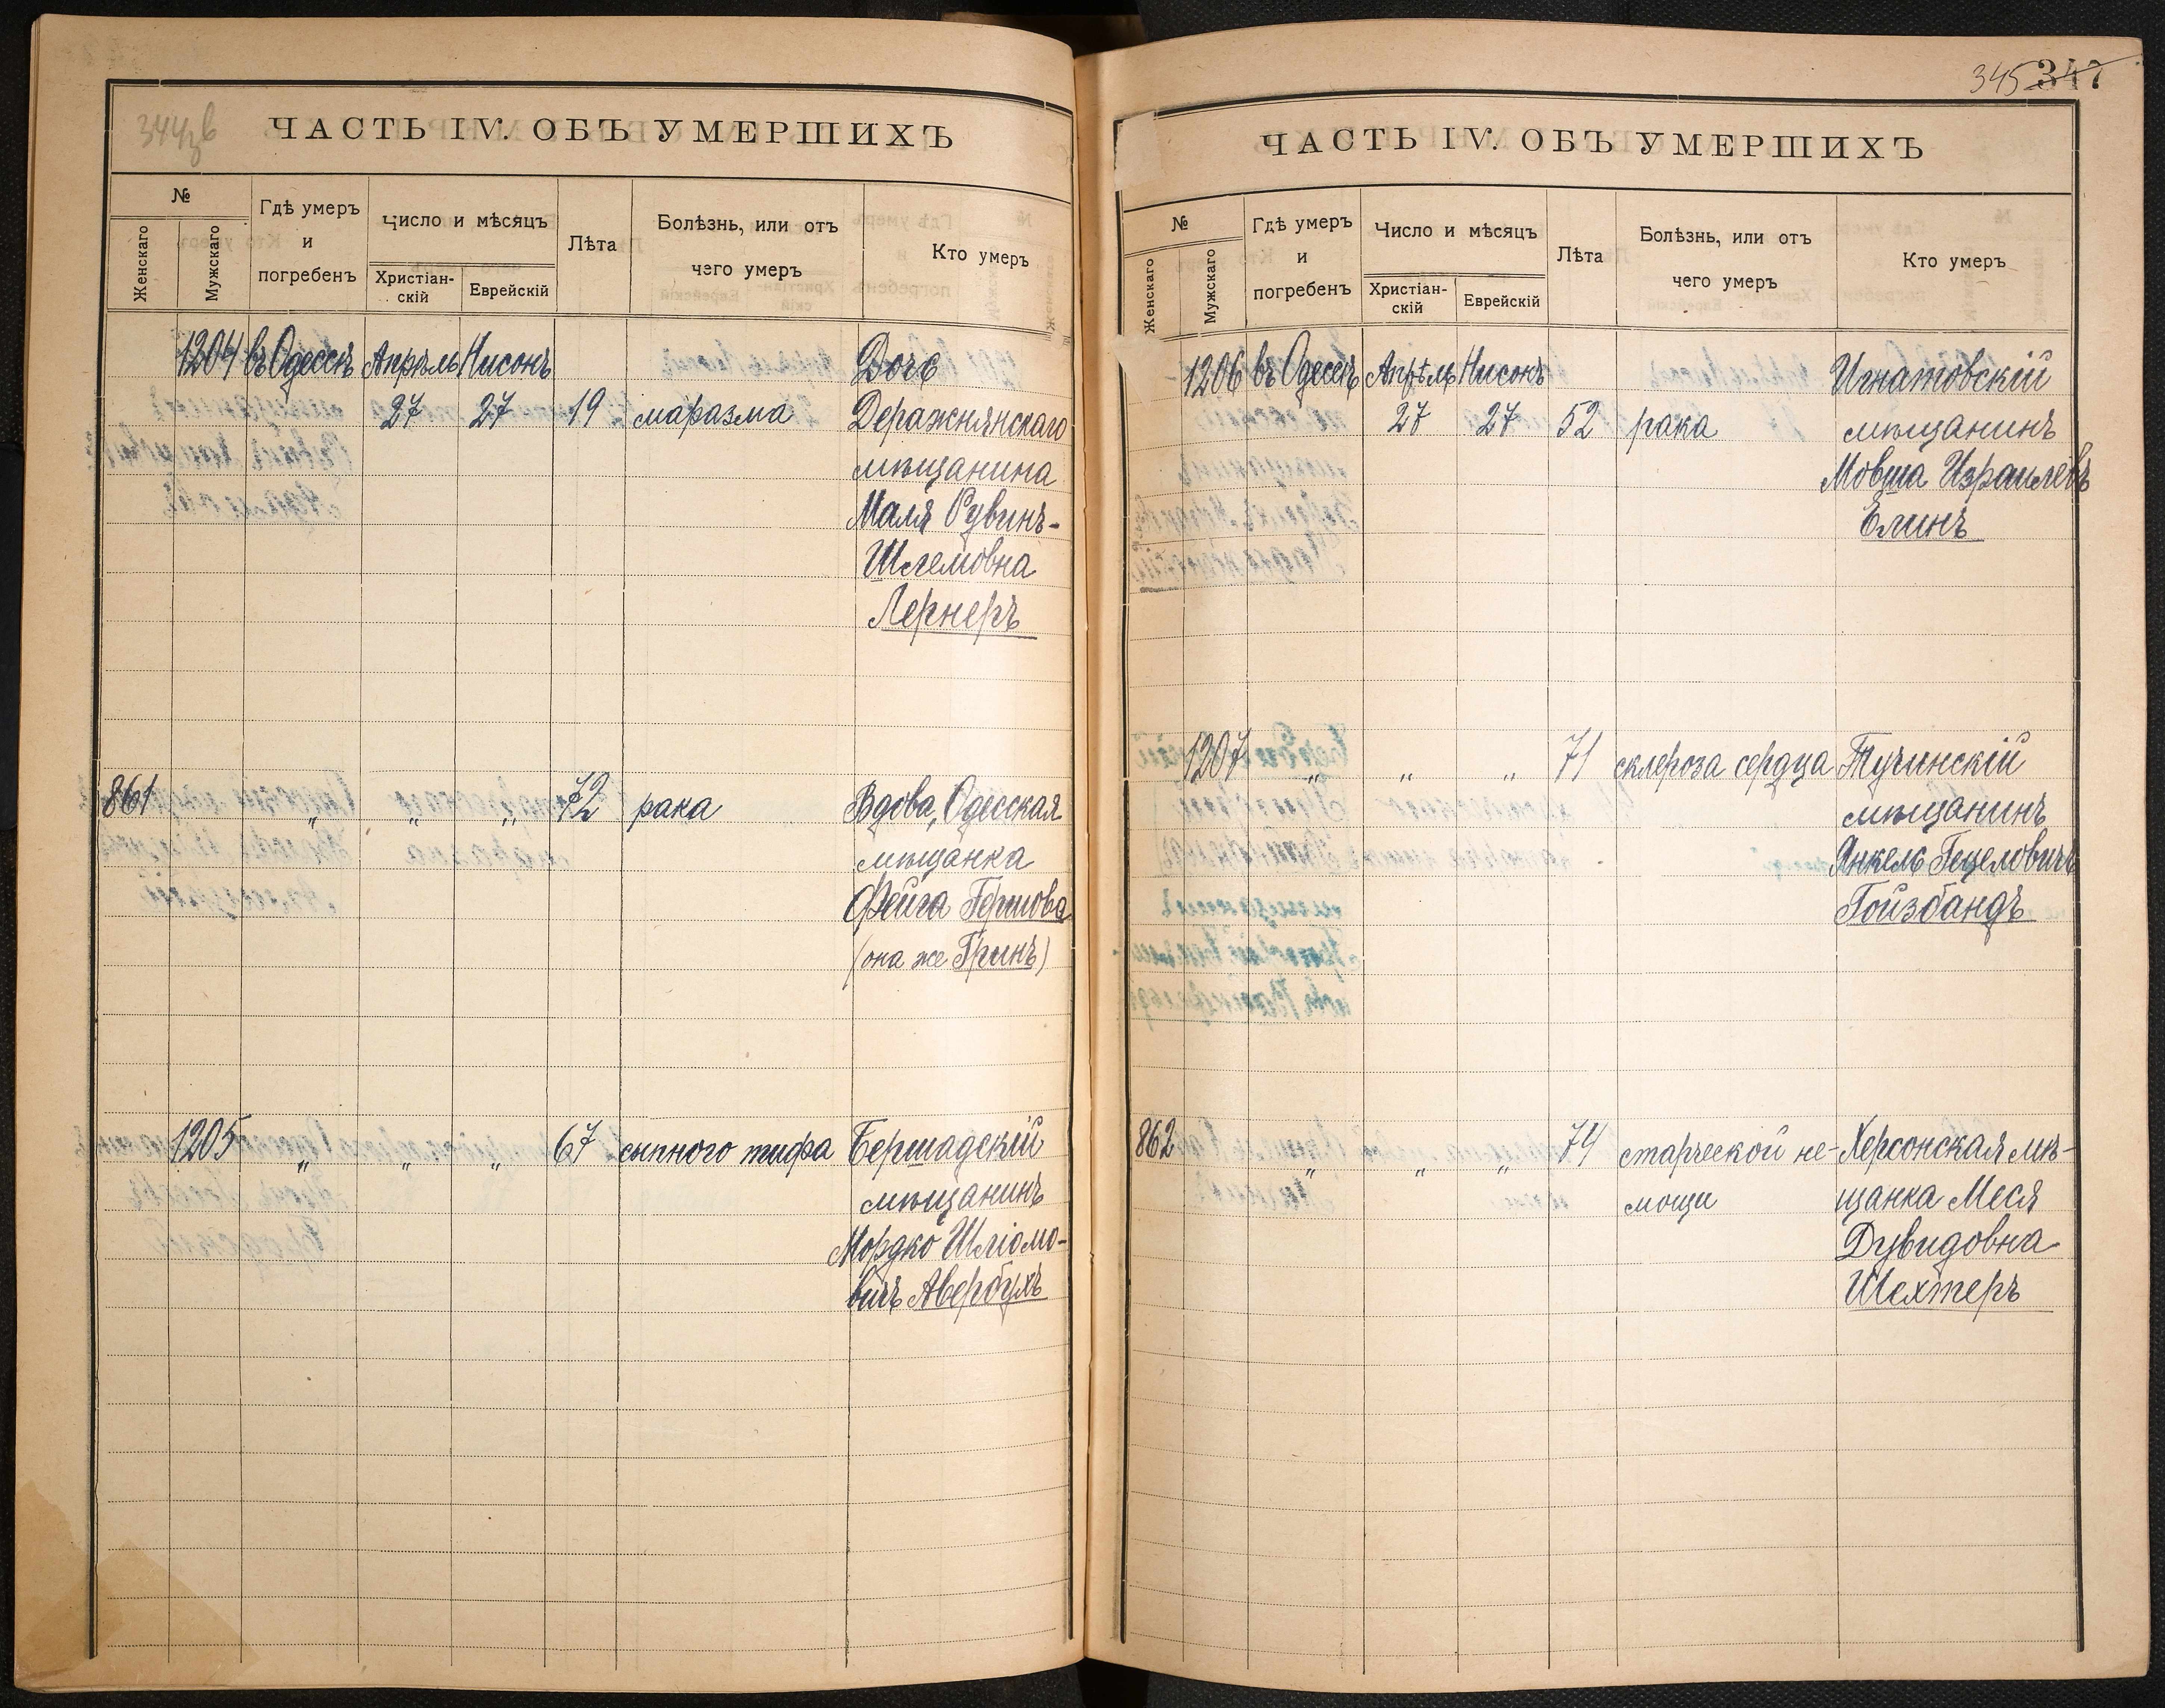 344зв
ЧАСТЬ IV. ОБЪ УМЕРШИХЪ
№
Женскаго
Мужскаго
Гдѣ умеръ
и
погребенъ
Число и мѣсяцъ
Христіан-
скій
Еврейскій
Лѣта
Болѣзнь, или отъ
чего умеръ
Кто умеръ
1204 въ Одессѣ Апрѣль Нисонъ Дочь
27 27 19 маразма Деражнянскаго
мѣщанина
Маля Рувинъ-
Шлемовна
Лернеръ
861 „ „ „ 72 рака Вдова, Одесская
мѣщанка
Фейга Гершова
(она же Гринъ)
1205 „ „ „ 67 сыпного тифа Бершадскій
мѣщанинъ
Мордко Шліомо-
вичъ Авербухъ
345 347
ЧАСТЬ IV. ОБЪ УМЕРШИХЪ
№
Женскаго
Мужскаго
Гдѣ умеръ
и
погребенъ
Число и мѣсяцъ
Христіан-
скій
Еврейскій
Лѣта
Болѣзнь, или отъ
чего умеръ
Кто умеръ
1206 въ Одессѣ Апрѣль Нисонъ Игнатовскій
27 27 52 рака мѣщанинъ
Мовша Израилевъ
Елинъ
1207 „ „ „ 71 склероза сердца Тучинскій
мѣщанинъ
Янкель Гецеловичъ
Гойзбандъ
862 „ „ „ 74 старческой не- Херсонская мѣ-
мощи щанка Меся
Дувидовна
Шехтеръ